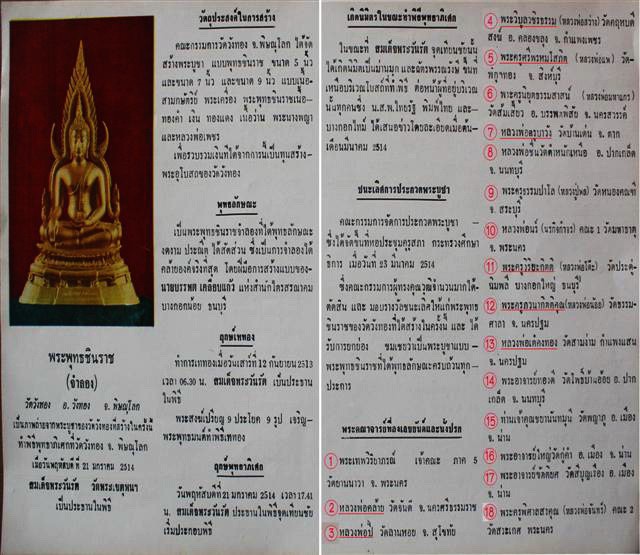 วัตถุประสงค์ในการสร้าง
คณะกรรมการวัดวังทอง จ.พิษณุโลก ได้จัด
สร้างพระบูชา แบบพุทธชินราช ขนาด 5 นิ้ว
และขนาด 7 นิ้ว และขนาด 9 นิ้ว แบบเนื้อ
สามกษัตริย์ พระเครื่อง พระพุทธชินราชเนื้อ
ทองคำ เงิน ทองแดง เนื้อว่าน พระนางพญา
และหลวงพ่อเพชร
เพื่อรวบรวมเงินที่ได้จากการนี้เป็นทุนสร้าง
พระอุโบสถของวัดวังทอง
พุทธลักษณะ
เป็นพระพุทธชินราชจำลองที่ได้พุทธลักษณะ
งดงาม ประณีต ได้สัดส่วน ซึ่งเป็นการจำลองได้
คล้ายองค์จริงที่สุด โดยฝีมือการสร้างแบบของ-
นายบรรพต เคลือบแก้ว แห่งสำนักไตรสรณาคม
บางกอกน้อย ธนบุรี
ฤกษ์เททอง
ทำการเททองเมื่อวันเสาร์ที่ 12 กันยายน 2513
เวลา 06.30 น. สมเด็จพระวันรัต เป็นประธาน
ในพิธี
พระสงฆ์เปรียญ 9 ประโยค 9 รูป เจริญ-
พระพุทธมนต์ทำพิธีเททอง
ฤกษ์พุทธาภิเศก
วันพฤหัสบดีที่ 21 มกราคม 2514 เวลา 17.41
น. สมเด็จพระวันรัต ประธานในพิธีจุดเทียนชัย
เริ่มประกอบพิธี
พระพุทธชินราช
(จำลอง)
วัดวังทอง อ.วังทอง จ.พิษณุโลก
เป็นภาพถ่ายจากพระบูชาของวัดวังทองที่สร้างในครั้งนี้
ทำพิธีพุทธาภิเศกที่วัดวังทอง จ.พิษณุโลก
เมื่อวันพฤหัสบดี ที่ 21 มกราคม 2514
สมเด็จพระวันรัต วัดพระเชตุพนฯ
เป็นประธานในพิธี
เกิดนิมิตรในขณะทำพิธีพุทธาภิเศก
ในขณะที่ สมเด็จพระวันรัต จุดเทียนชัยนั้น
ได้เกิดนิมิตเป็นม่านมุก และฉัพพรรณรังษี ขึ้นที่
เหนือบริเวณโบสถ์ที่ทำพิธี
น.ส.พ.ไทยรัฐ พิมพ์ไทย และ
บางกอกไทม์ ได้เสนอข่าวโดยละเอียดเมื่อต้น
เดือนมีนาคม 2514
ชนะเลิศการประกวดพระบูชา
คณะกรรมการจัดการประกวดพระบูชา
ซึ่งได้จัดขึ้นที่หอประชุมคุรุสภา กระทรวงศึกษา
ธิการ เมื่อวันที่ 23 มีนาคม 2514
ซึ่งคณะกรรมการผู้ทรงคุณวุฒิจำนวนมากได้
ตัดสิน และ มอบรางวัลชนะเลิศให้แก่พระพุทธ
ชินราชของวัดวังทองที่ได้สร้างในครั้งนี้ และ ได้
รับการยกย่อง ชมเชยว่าเป็นพระบูชาแบบ
พระพุทธชินราชที่ได้พุทธลักษณะครบถ้วนทุก-
ประการ
พระคณาจารย์ที่ลงเลขยันต์และนั่งปรก
1 พระเทพวิริยาภรณ์ เจ้าคณะ ภาค 5
วัดยานนาวา จ.พระนคร
2 หลวงพ่อคล้าย วัดจันดี จ.นครศรีธรรมราช
3 หลวงพ่อปี้ วัดลานหอย จ.สุโขทัย
4 พระวิบูลวชิรธรรม (หลวงพ่อสว่าง) วัดคฤหบดี
สงฆ์ อ.คลองขลุง จ.กำแพงเพชร
5 พระครูศรีพรหมโสภิต (หลวงพ่อแพ) วัด-
พิกุลทอง จ.สิงห์บุรี
6
วัดส้มเสี้ยว อ.บรรพตพิสัย จ.นครสวรรค์
7 หลวงพ่อครูบาวัง วัดบ้านเด่น จ.ตาก
8 หลวงพ่อชื่นวัดตำหนักเหนือ อ.ปากเกล็ด
จ.นนทบุรี
9 พระครูธรรมปาโล (หลวงปู่ผล) วัดหนองคณฑี
จ.สระบุรี
10 หลวงพ่อเมธ์ คณะ 1 วัดมหาธาตุ
จ.พระนคร
11 พระครูวิริยะกิตติ (หลวงพ่อโต๊ะ) วัดประดู่-
ฉิมพลี บางกอกใหญ่ ธนบุรี
12 พระครูภาวนากิตติคุณ(หลวงพ่อน้อย) วัดธรรม-
ศาลา จ.นครปฐม
13 หลวงพ่อเต๋คงทอง วัดสามง่าม กำแพงแสน
จ.นครปฐม
14 พระอาจารย์ทองดี วัดโพธิ์บ้านอ้อย อ.ปาก
เกล็ด จ.นนทบุรี
15 ท่านเจ้าคุณชยานันทมุนี วัดพญาภู อ.เมือง
จ.น่าน
16 พระอาจารย์ใหญ่วัดภูคำ อ.เมือง จ.น่าน
17 พระอาจารย์ขัตติยศ วัดสีบุญเรือง อ.เมือง
จ.น่าน
18 พระครูพิศาลสรคุณ (หลวงพ่อจันทร์) คณะ 2
วัดสระเกศ พระนคร